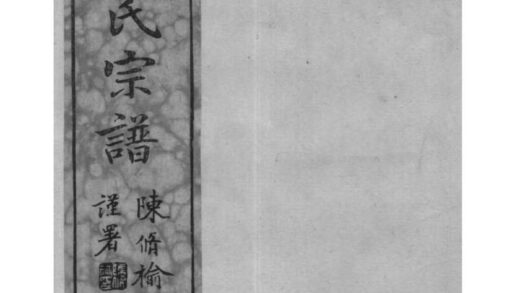 氏宗譜
陳脩榆
謹署